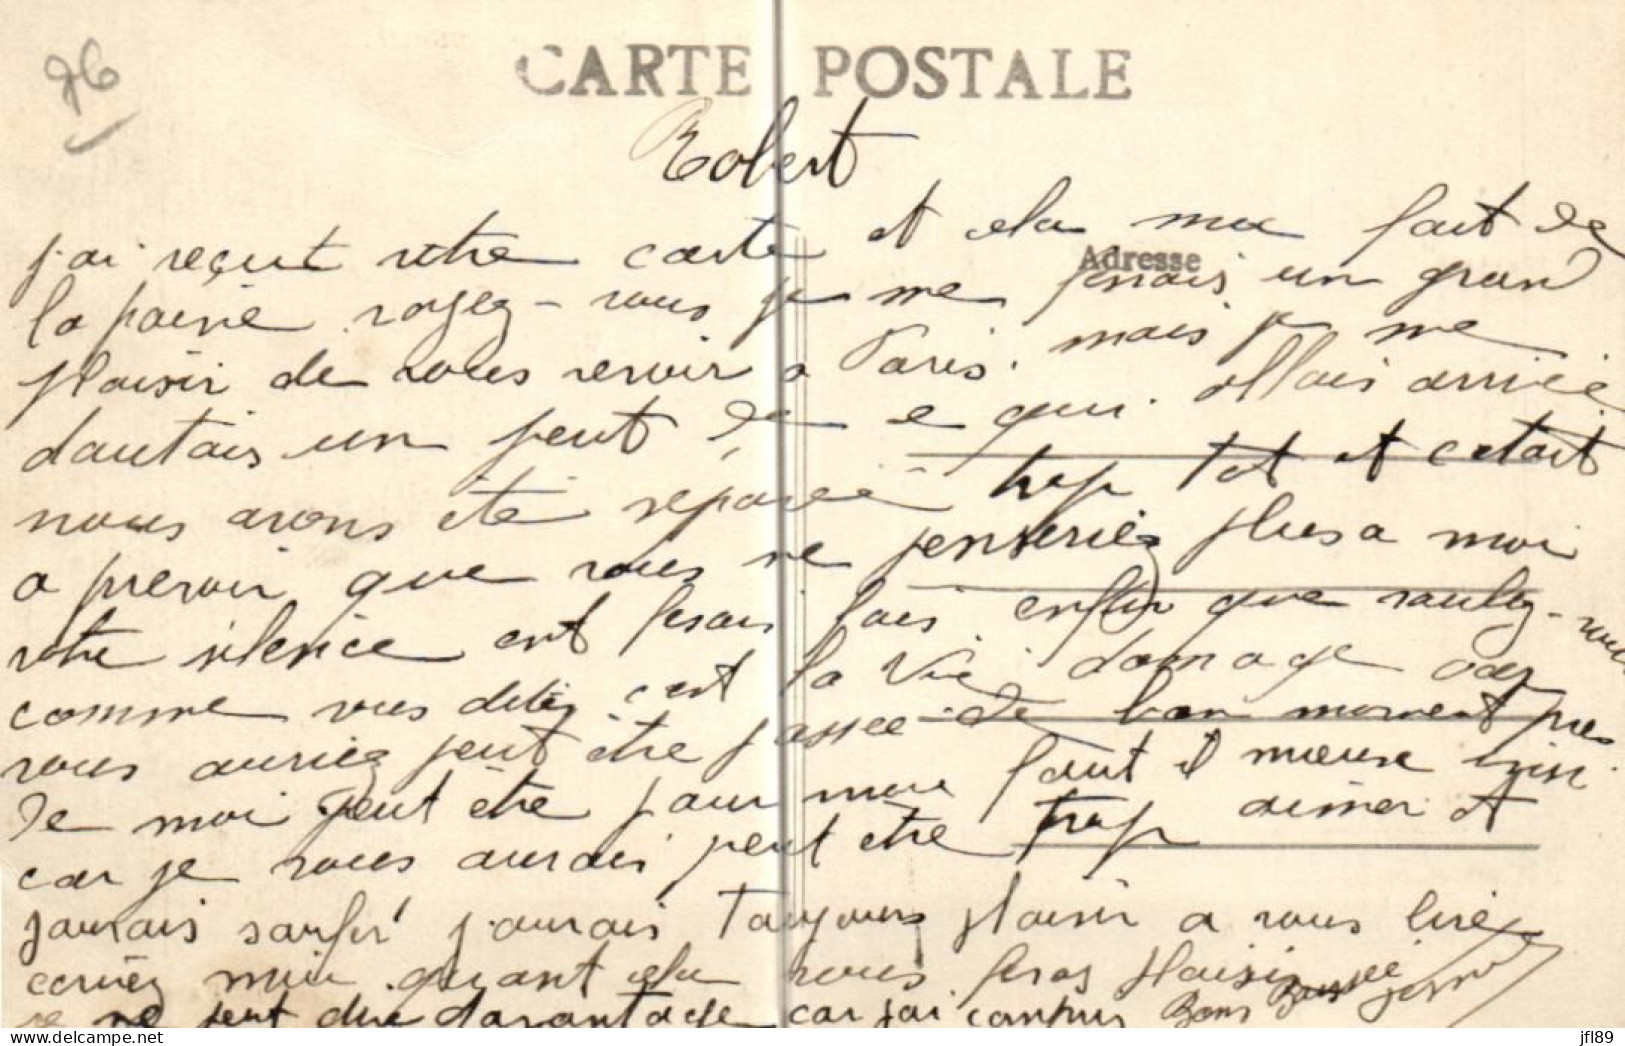 76
CARTE POSTALE
Robert
j'ai reçut votre carte et cela ma fait de
Adresse
la paeine voyez-vous je me fesais un grand
plaisir de vous revoir a Paris. mais je me
dautais un peut de ce qui allais arrivée
nous avons été séparée trop tot et cetait
a prevoir que vous ne penseriez plus a moi
votre silence ent fesais fois enfin que voulez-vous
comme vous ditez c'est la vie domage car
vous auriez peut être passée de bon moment pres
de moi peut être pour moi faut il mieux ainsi
car je vous aurais peut être trop aimer et
jaurais soufri j'aurais toujours plaisir a vous lire
ecriez moi quant cela vous feras plaisir
je ne peut dire davantage car j'ai compris Bons Baisée
jfl89